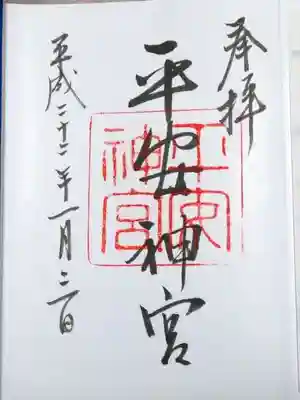 奉拝
平安神宮
平安神宮
平成二十二年一月二日